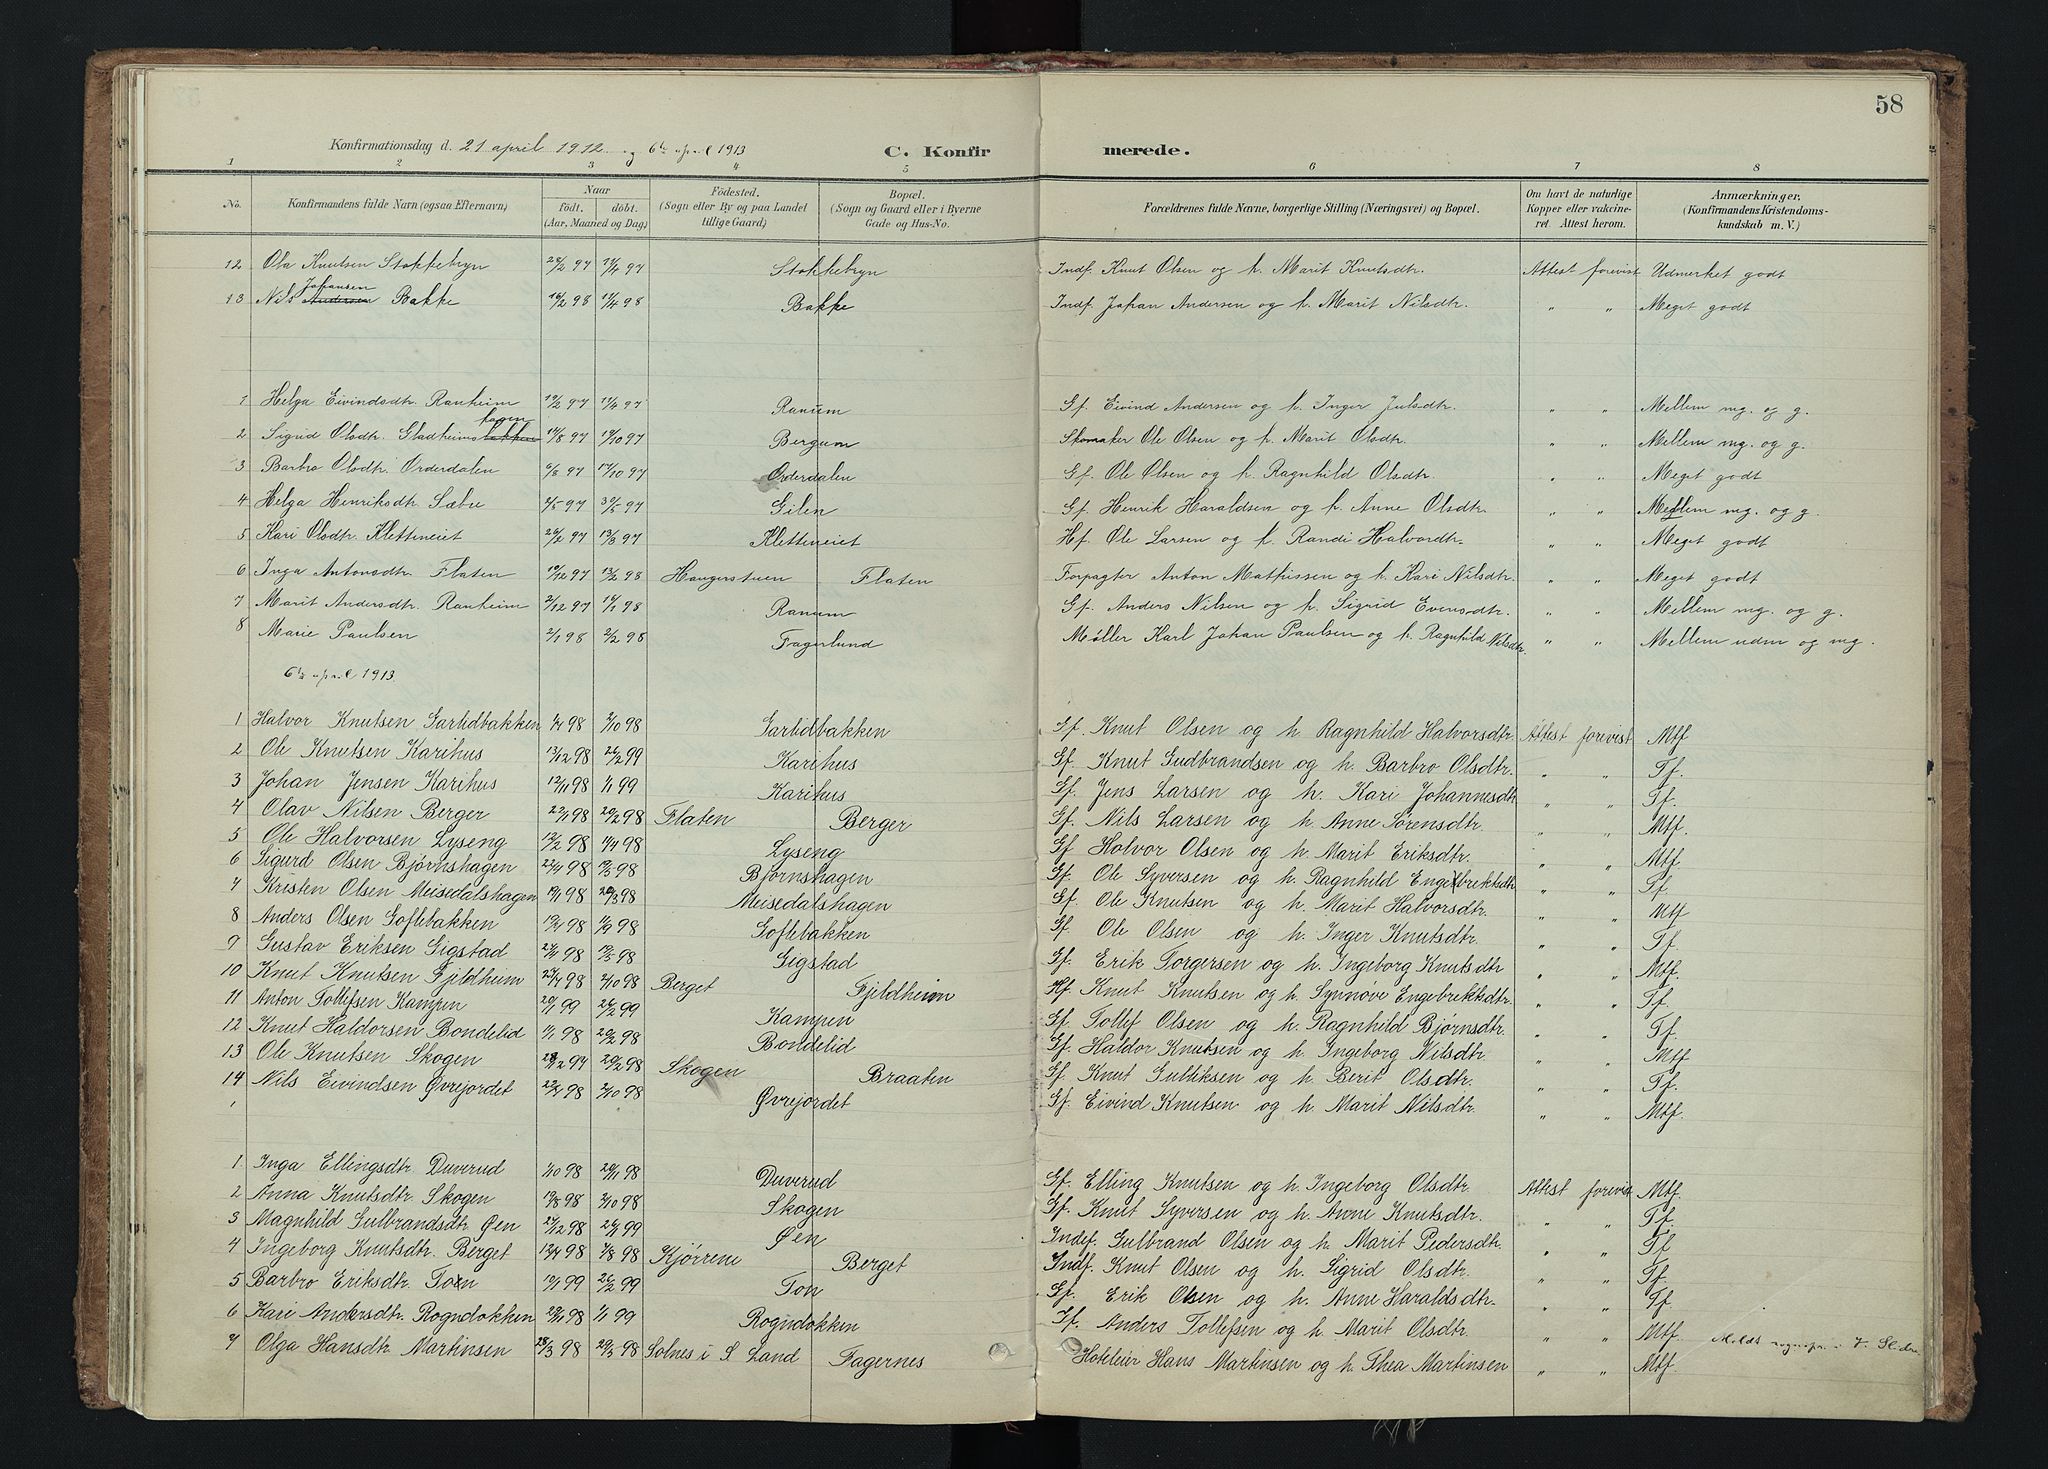 58
Konfirmationsdag d. 21 april 1912 og 6te april 1913
C. Konfirmerede.
1 2 3 4 5 6 7 8
No. Konfirmandens fulde Navn (ogsaa Efternavn) Naar födt. döbt. (Aar, Maaned og Dag) Födested. (Sogn eller By og paa Landet tillige Gaard) Bopæl. (Sogn og Gaard eller i Byerne Gade og Hus-No. Forældrenes fulde Navne, borgerlige Stilling (Næringsvei) og Bopæl. Om havt de naturlige Kopper eller vakcineret Attest herom. Anmærkninger. (Konfirmandens Kristendomskundskab m. V.)
12 Ola Knutsen Stokkebryn Stokkebryn Indf. Knut Olsen og h. Marit Knutsdtr. Attest forevist Udmerket godt
13 Nils Andersen Johansen Bakke 16/2 98 11/4 98 Bakke Indf. Johan Andersen og h. Marit Nilsdtr. " " Meget godt
1 Helga Eivindsdtr. Ranheim Ranum Gf. Eivind Andersen og h. Inger Julsdtr. " " Mellem mg. og g.
2 Sigrid Olsdtr. Gladheimshagen Bergum Skomaker Ole Olsen og h. Marit Olsdtr. " " Mellem mg. og g.
3 Barbro Olsdtr. Ørderdalen 17/10 97 Ørderdalen Gf. Ole Olsen og h. Ragnhild Olsdtr. " " Meget godt
4 Helga Henriksdtr. Sæbu 2/5 97 30/5 97 Gilen Gf. Henrik Haraldsen og h. Anne Olsdtr. " " Mellem mg. og g.
5 Kari Olsdtr. Kletteneiet Kletteneiet Hf. Ole Larsen og h. Randi Halvordtr. " " Meget godt
6 Inga Antonsdtr. Flaten 19/12 97 13/2 98 Haugerstuen Flaten Forpagter Anton Mathissen og h. Kari Nilsdtr. " " Meget godt
7 Marit Andersdtr. Ranheim 2/12 97 16/1 98 Ranum Gf. Anders Nilsen og h. Sigrid Evensdtr. " " Mellem mg. og g.
8 Marie Paulsen 2/1 98 2/2 98 Fagerlund Møller Karl Johan Paulsen og h. Ragnhild Nilsdtr. " " Mellem udm og mg.
6te april 1913
1 Halvor Knutsen Garlidbakken 2/10 98 Garlidbakken Gf. Knut Olsen og h. Ragnhild Halvorsdtr. Attest forevist Mtf
2 Ole Knutsen Karihus 13/12 98 26/2 99 Karihus Gf. Knut Gudbrandsen og h. Barbro Olsdtr. " " Tf.
3 Johan Jensen Karihus 12/11 98 1/1 99 Karihus Gf. Jens Larsen og h. Kari Johannesdtr " " Tf.
4 Olav Nilsen Berger 22/1 98 20/2 98 Flaten Berger Gf. Nils Larsen og h. Anne Sørensdtr. " " Mtf.
5 Ole Halvorsen Lyseng 12/2 98 11/4 98 Lyseng Gf Halvor Olsen og h. Marit Eriksdtr. " " Mtf
6 Sigurd Olsen Bjørnshagen 22/4 98 Bjørnshagen Gf. Ole Syversen og h. Ragnhild Engebrektsdtr " " Tf
7 Kristen Olsen Meisedalshagen 20/3 98 Meisedalshagen Gf. Ole Knutsen og h. Marit Halvorsdtr. " " Mtf
8 Anders Olsen Goflebakken Goflebakken Gf Ole Olsen og h. Inger Knutsdtr. " " Tf.
9 Gustav Eriksen Gigstad Gigstad Gf. Erik Torgersen og h. Ingeborg Knutsdtr " " Mtf.
10 Knut Knutsen Fjeldheim 2/10 98 Berget Fjeldheim Hf. Knut Knutsen og h. Synnøve Engebrektsdtr. " " Tf.
11 Anton Tollefsen Kampen 20/1 99 26/2 99 Kampen Gf. Tollef Olsen og h. Ragnhild Bjørnsdtr. " " Tf.
12 Knut Haldorsen Bondelid 11/1 98 20/2 98 Bondelid Gf. Haldor Knutsen og h. Ingeborg Nilsdtr. " " Mtf
13 Ole Knutsen Skogen 28/12 97 20/2 98 Skogen Braaten Gf. Knut Gulliksen og h. Berit Olsdtr. " " Tf.
14 Nils Eivindsen Øvrejordet 2/10 98 Øvrejordet Gf. Eivind Knutsen og h. Marit Nilsdtr. " " Mtf.
1 Inga Ellingsdtr. Duverud 1/10 98 20/11 98 Duverud Gf. Elling Knutsen og h. Ingeborg Olsdtr. Attest forevist Mtf.
2 Anna Knutsdtr. Skogen 19/8 98 2/10 98 Skogen Gf. Knut Syversen og h. Anne Knutsdtr. " " Tf.
3 Magnhild Gulbrandsdtr. Øen Øen Indf. Gulbrand Olsen og h. Marit Pedersdtr. " " Tf
4 Ingeborg Knutsdtr. Berget 7/8 98 Kjørrene Berget Indf. Knut Olsen og h. Sigrid Olsdtr. " " Tf.
5 Barbro Eriksdtr. Ton 26/2 99 Ton Gf. Erik Olsen og h. Anne Haraldsdtr. " " Tf.
6 Kari Andersdtr. Rogndokken 1/1 99 Rogndokken Gf. Anders Tollefsen og h. Marit Olsdtr. " " Mtf.
7 Olga Hansdtr. Martinsen 28/3 98 Solnes i S. Land Fagernes Hoteleier Hans Martinsen og h. Thea Martinsen " " Mtf. Meldt sognepr. i V. Slidre